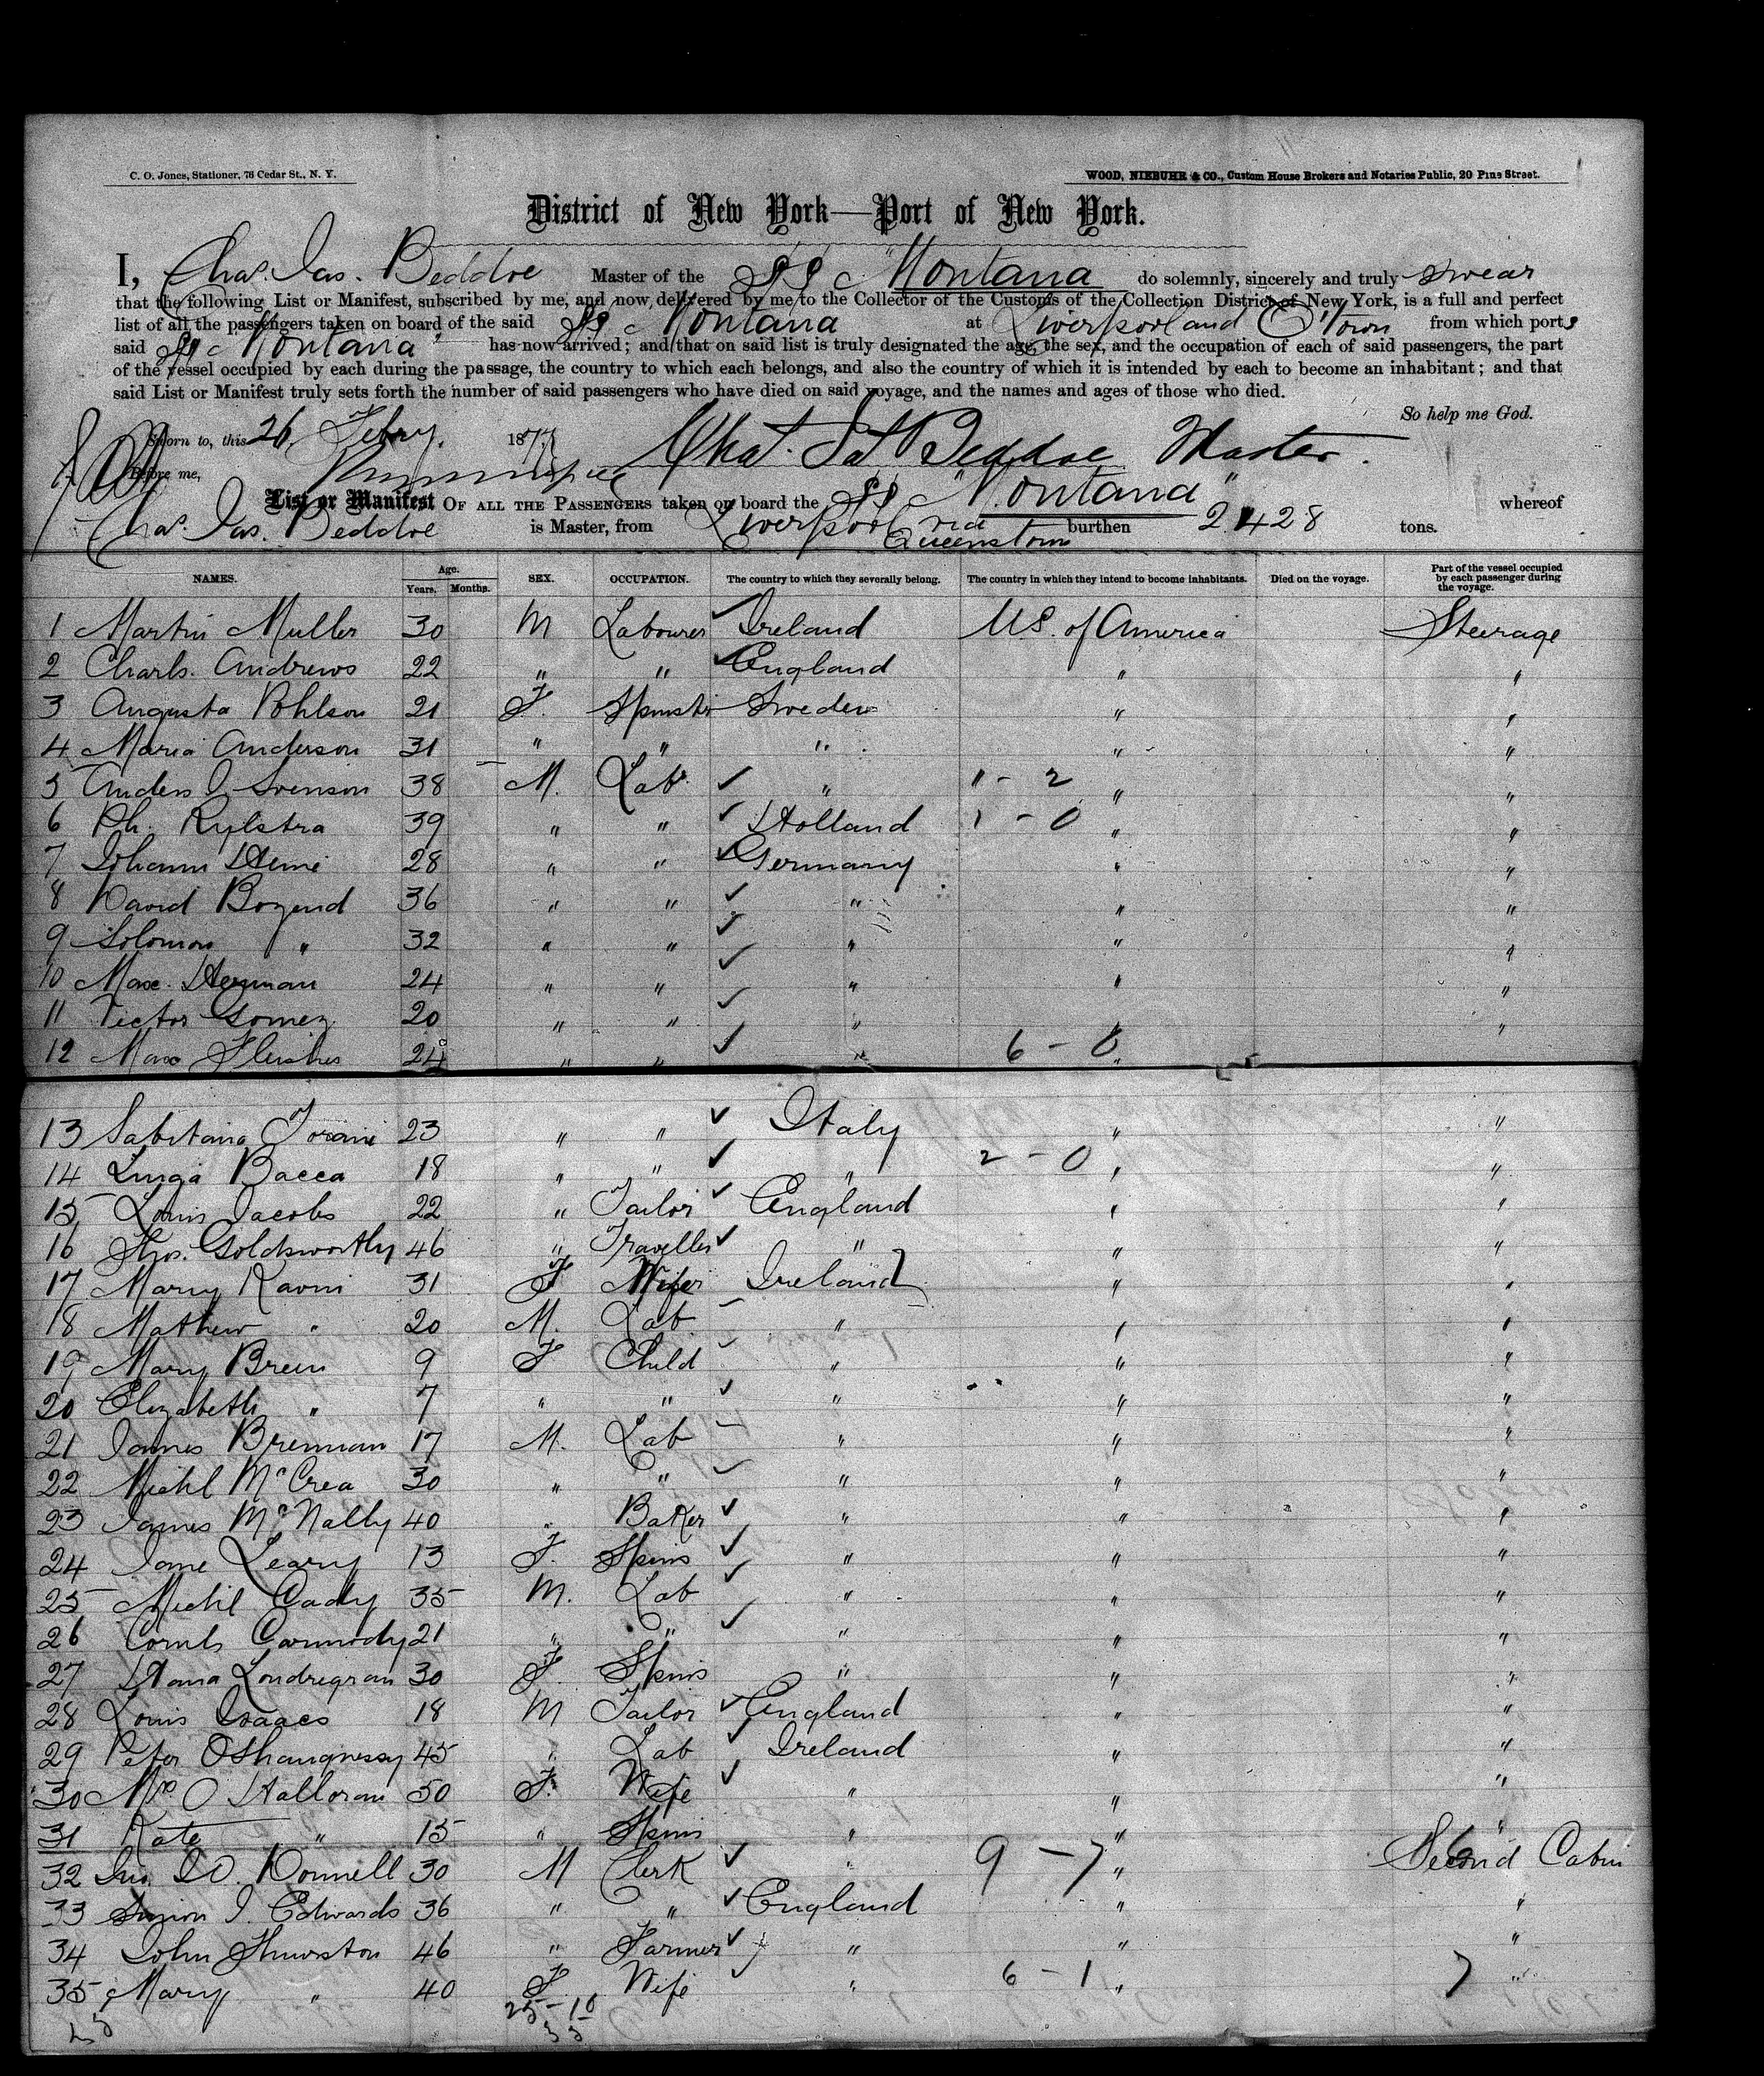 C. O. Jones, Stationer, 76 Cedar St., N. Y.
WOOD, NIEBUHR & CO., Custom House Brokers and Notaries Public, 20 Pine Street.
District of New York—Port of New York.
I, Chas. Jas. Beddoe Master of the SS "Montana" do solemnly, sincerely and truly swear
that the following List or Manifest, subscribed by me, and now delivered by me to the Collector of the Customs of the Collection District of New York, is a full and perfect
list of all the passengers taken on board of the said SS Montana at Liverpool and Q'Town from which ports
said SS Montana has now arrived; and that on said list is truly designated the age, the sex, and the occupation of each of said passengers, the part
of the vessel occupied by each during the passage, the country to which each belongs, and also the country of which it is intended by each to become an inhabitant; and that
said List or Manifest truly sets forth the number of said passengers who have died on said voyage, and the names and ages of those who died.
So help me God.
Sworn to, this 26 Febry. 1877
Chas. Jas Beddoe Master.
Before me,
List or Manifest OF ALL THE PASSENGERS taken on board the SS "Montana" whereof
Chas. Jas. Beddoe is Master, from Liverpool via Queenstown burthen 2428 tons.
NAMES. Age. Years. Months. SEX. OCCUPATION. The country to which they severally belong. The country in which they intend to become inhabitants. Died on the voyage. Part of the vessel occupied by each passenger during the voyage.
1 Martin Muller 30 M Labourer Ireland U.S. of America Steerage
2 Charls. Andrews 22 " " England " "
3 Augusta Pohlson 21 F. Spinster Sweden " "
4 Maria Anderson 31 " " " " "
5 Anders J. Svenson 38 M. Lab " 1 - 2 " "
6 Ph. Rylstra 39 " " Holland 1 - 0 " "
7 Johann Heine 28 " " Germany " "
8 David Bozend 36 " " " " "
9 Solomon " 32 " " " " "
10 Max. Herman 24 " " " " "
11 Victor Gomez 20 " " " " "
12 Max 24 " " " 6 - 0 "
13 23 " " Italy " "
14 Luiga Bacca 18 " " " 2 - 0 " "
15 Louis Jacobs 22 " Tailor England " "
16 Thos. Goldsworthy 46 " Traveller " " "
17 Mary 31 F Wife Ireland " "
18 Mathew " 20 M. Lab " " "
19 Mary Breen 9 F Child " " "
20 Elizabeth " 7 " " " " "
21 James Brennan 17 M. Lab " " "
22 Michl McCrea 30 " " " " "
23 James McNally 40 " Baker " " "
24 Jane Leary 13 F. Spins " " "
25 Michl Cady 35 M. Lab " " "
26 Cornls Carmody 21 " " " " "
27 Hana Londregran 30 F Spins " " "
28 Louis Isaacs 18 M Tailor England " "
29 Peter OShaugnessy 45 " Lab Ireland " "
30 Mrs. O Halloran 50 F. Wife " " "
31 Kate " 15 " Spins " " "
32 Jno. Donnell 30 M Clerk " 9 - 7 " Second Cabin
33 Simon J. Edwards 36 " " England " "
34 John Thurston 46 " Farmer " " "
35 Mary " 40 F Wife " 6 - 1 " 7 "
25 - 10
35